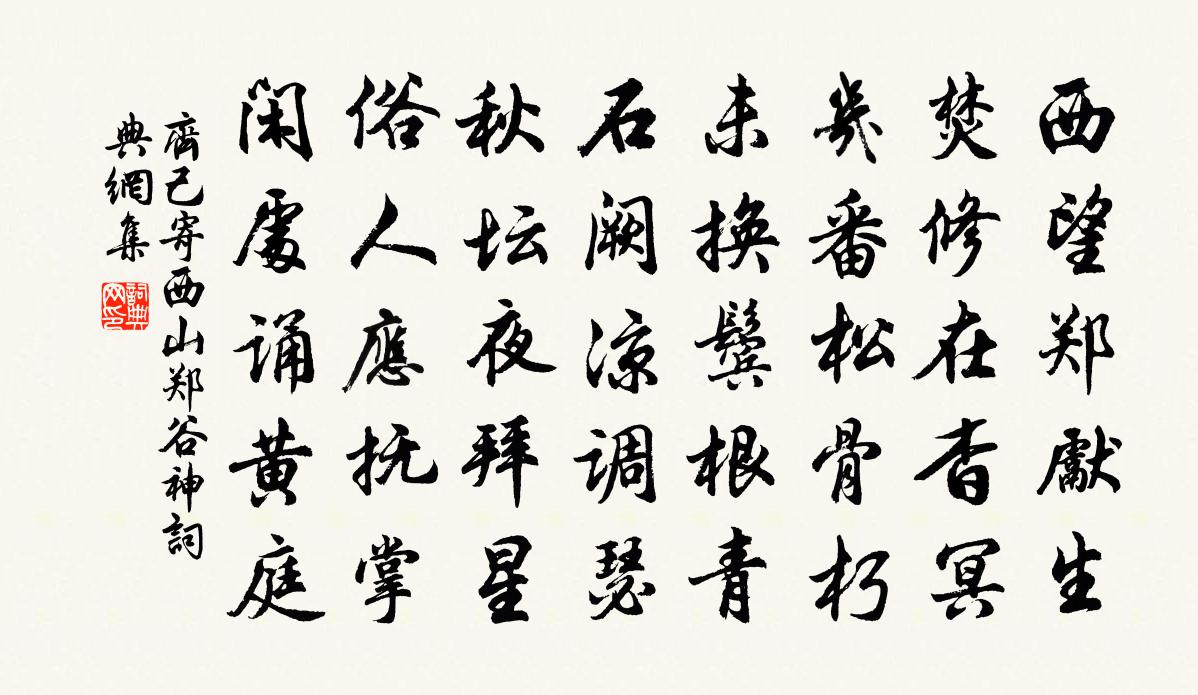 西望郑獻生
焚修在杳冥
幾番松骨朽
未換鬢根青
石阙凉调瑟
秋坛夜拜星
俗人應抚掌
閑處诵黄庭
齊己寄西山郑谷神詞
典網集
詞典網印